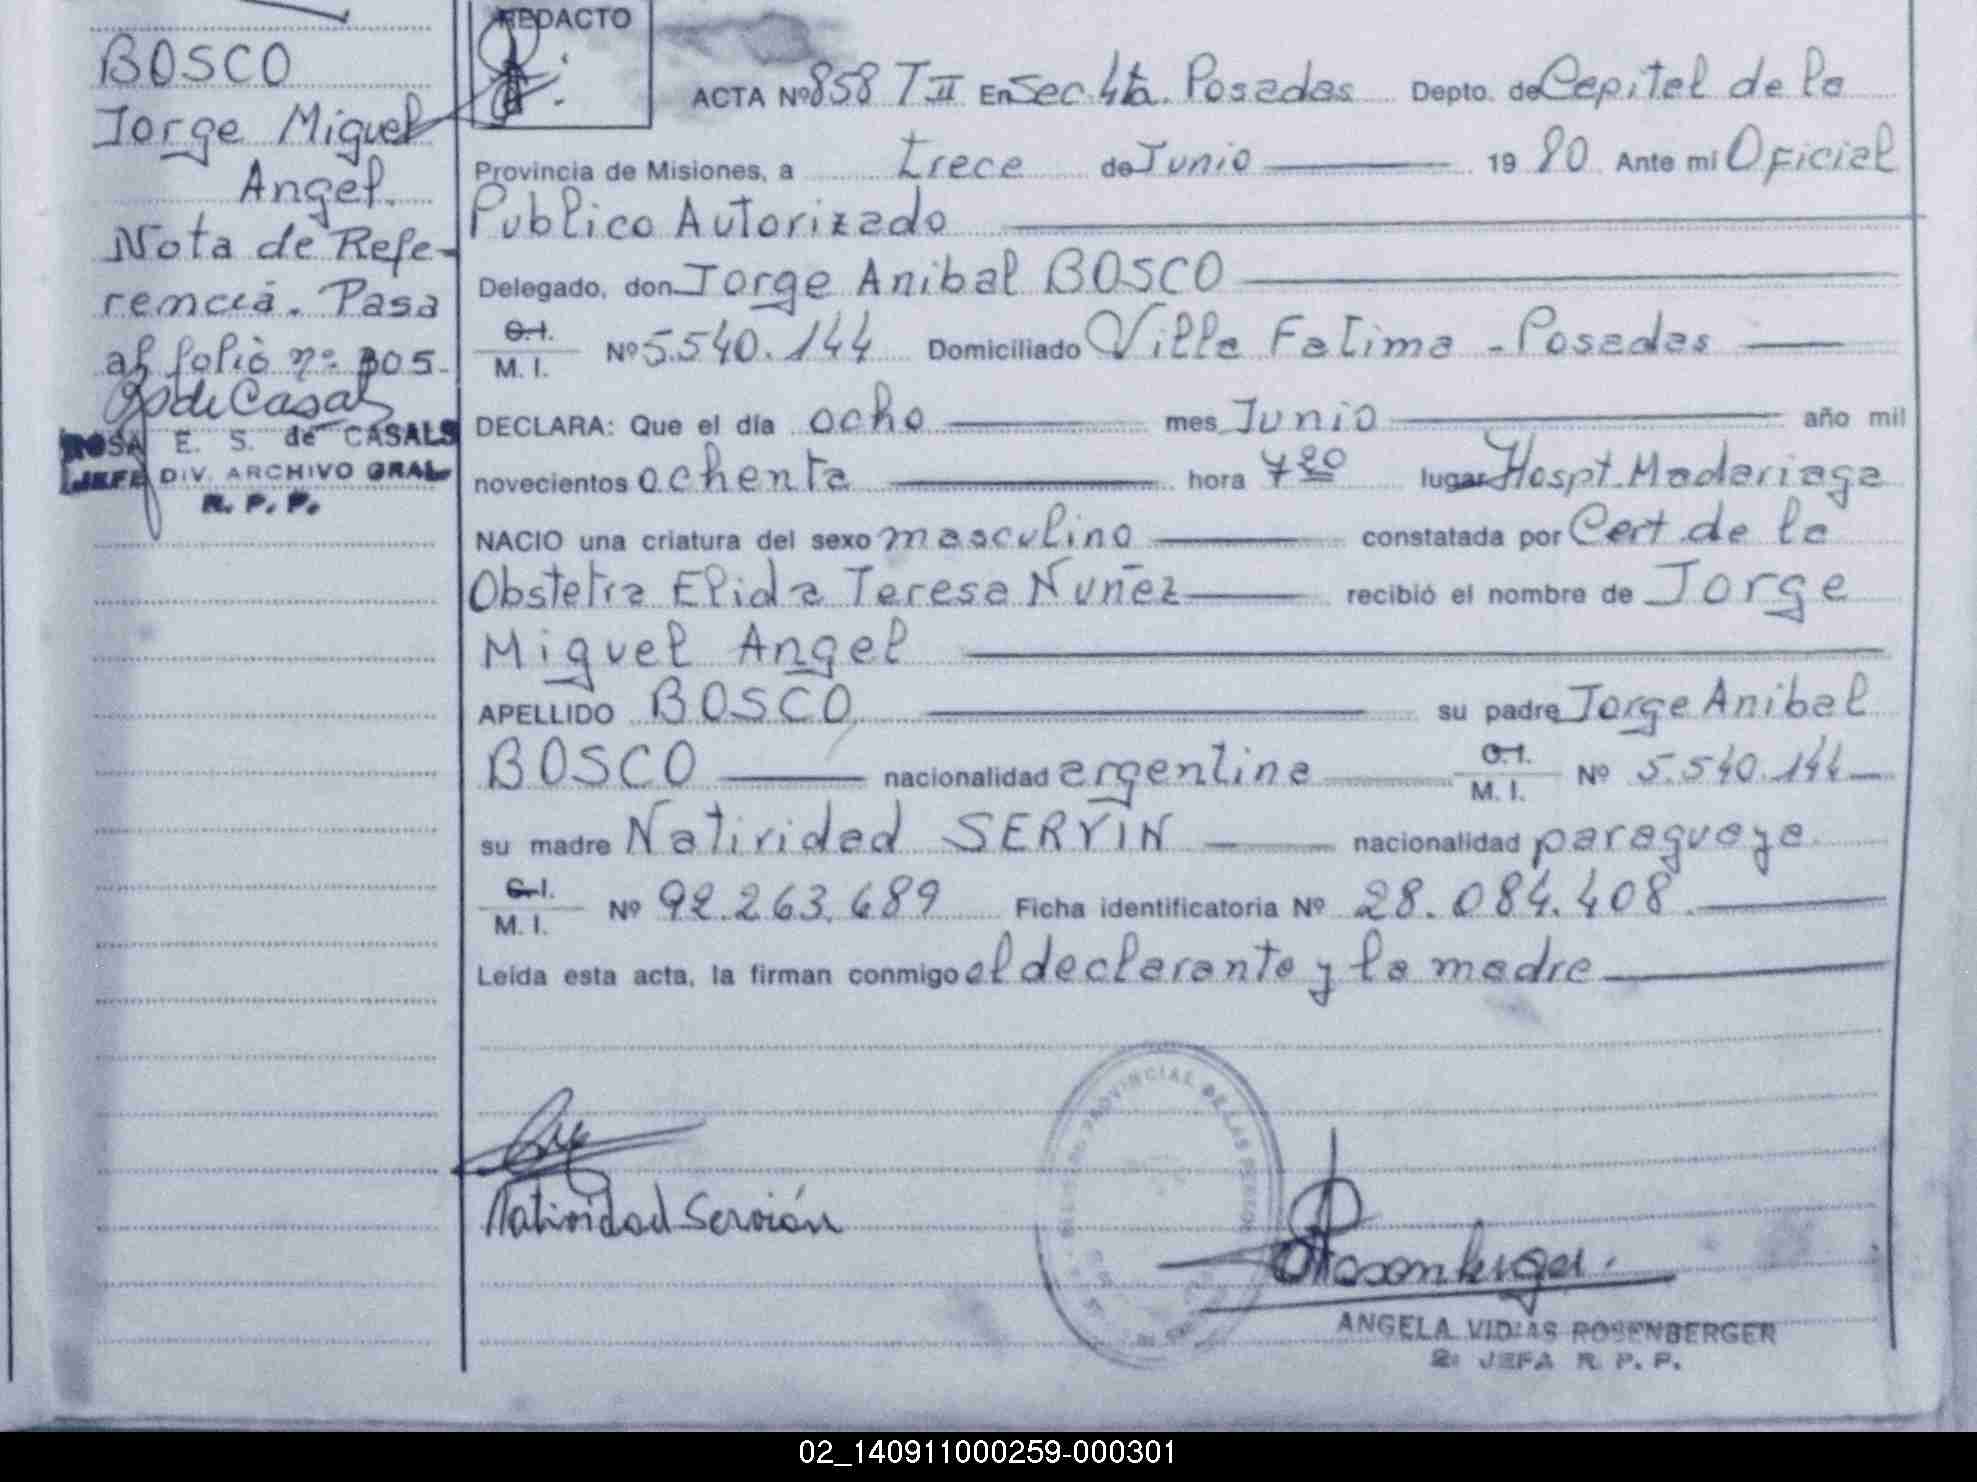 BOSCO
Jorge Miguel
Angel.
Nota de Refe-
rencia. Pasa
al folio nº 305.
ROSA E. S. de CASALS
JEFE DIV. ARCHIVO GRAL
R. P. P.
REDACTO
ACTA Nº 858 T II En Sec. 4ta. Posadas Depto. de Capital de la
Provincia de Misiones, a trece de Junio 1980 Ante mi Oficial
Publico Autorizado
Delegado, don Jorge Anibal BOSCO
C.I.
M. I. Nº 5.540.144 Domiciliado Villa Fatima - Posadas
DECLARA: Que el día ocho mes Junio año mil
novecientos ochenta hora 7 20 lugar Hospt. Madariaga
NACIO una criatura del sexo masculino constatada por Cert. de la
Obstetra Elida Teresa Nuñez recibió el nombre de Jorge
Miguel Angel
APELLIDO BOSCO su padre Jorge Anibal
BOSCO nacionalidad argentina C.I. M. I. Nº 5.540.144
su madre Natividad SERVIN nacionalidad paraguaya
C.I.
M. I. Nº 92.263.689 Ficha identificatoria Nº 28.084.408.
Leída esta acta, la firman conmigo el declarante y la madre
PROVINCIAL DE LAS PERSONAS
Natividad Servián
Rosenberger.
ANGELA VIDIAS ROSENBERGER
2º JEFA R. P. P.
02_140911000259-000301